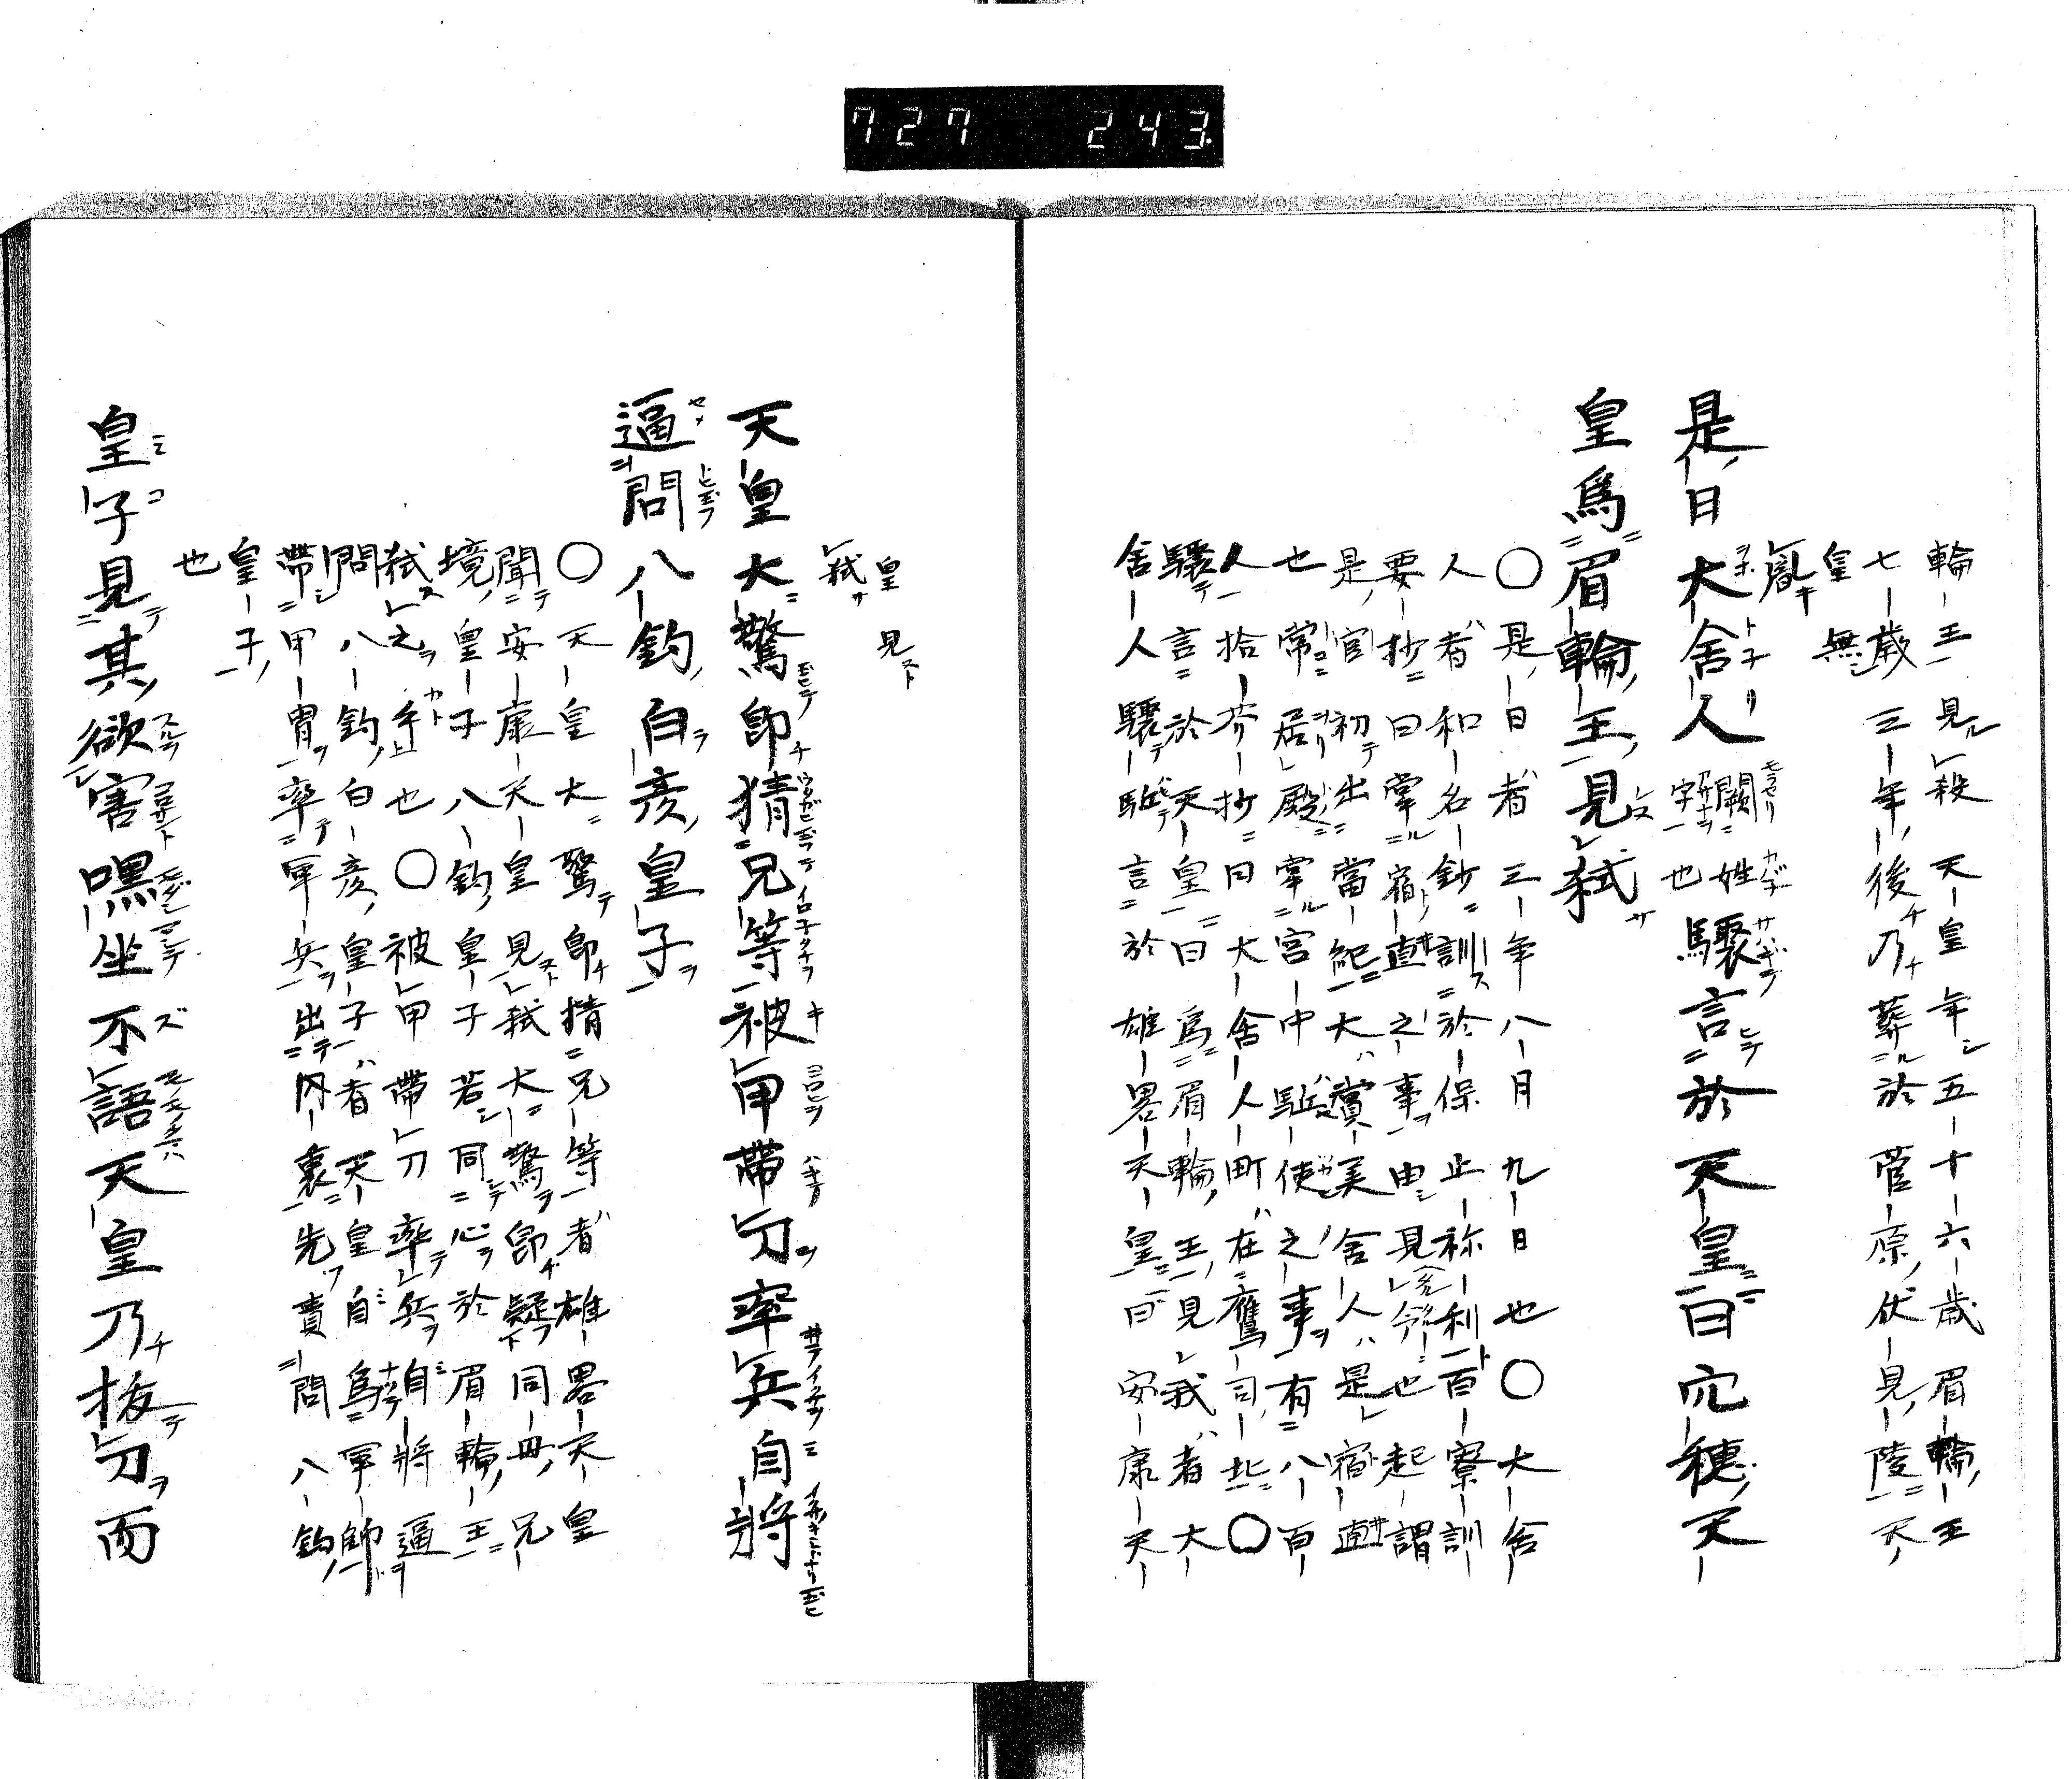 727 243
輪王見殺天皇年五十六歳眉輪王
七歳三年後乃葬於菅原伏見陵天
皇無
胤
是日大舎人闕姓字也驟言於天皇曰穴穂天
皇爲眉輪王見弑
〇是日者三年八月九日也〇大舎
人者和名鈔訓於保止祢利百寮訓
要抄曰掌宿直之事由見令也起謂
是官初出當紀大賞美舎人是宿直
也常居殿掌宮中駈使之事有八百
人拾芥抄曰大舎人町在鷹司北〇
驟言於天皇曰爲眉輪王見我者大
舎人驟駈言於雄畧天皇曰安康天
皇見
弑
天皇大驚即猜兄等被甲帯刀率兵自將
逼問八釣白彦皇子
〇天皇大驚即猜兄等者雄畧天皇
聞安康天皇見弑大驚即疑同母兄
境皇子八釣皇子若同心於眉輪王
弑之乎也〇被甲帯刀率兵自將逼
問八釣白彦皇子者天皇自爲軍帥
帯甲冑率軍兵出内裏先責問八釣
皇子
也
皇子見其欲害嘿坐不語天皇乃抜刀而